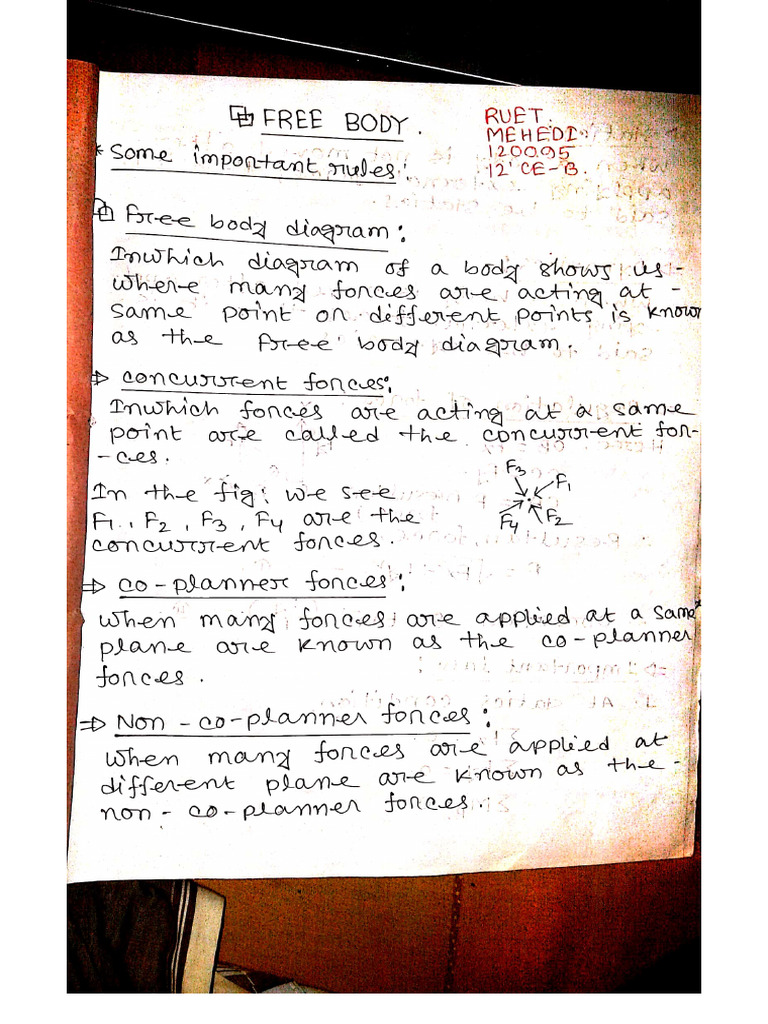 FREE BODY.
RUET.
MEHEDI
120095
12' CE-B.
* Some important rules:
Free body diagram:
Inwhich diagram of a body shows us-
where many forces are acting at -
same point or different points is known
as the free body diagram.
⇒ concurrent forces:
Inwhich forces are acting at a same
point are called the concurrent for-
-ces.
In the fig: we see
F1, F2, F3, F4 are the
concurrent forces.
F3
F1
F4
F2
⇒ co-planner forces:
when many forces are applied at a same
plane are known as the co-planner
forces.
⇒ Non-co-planner forces:
when many forces are applied at
different plane are known as the-
non-co-planner forces.